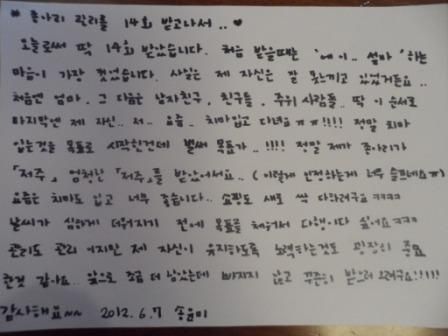 * 종아리 관리를 14회 받고나서.. ♥
오늘로써 딱 14회 받았습니다. 처음 받을때는 '에이.. 설마' 하는
마음이 가장 컸었습니다. 사실은 제 자신은 잘 못느끼고 있었거든요..
처음엔 엄마, 그 다음은 남자친구, 친구들, 주위 사람들.. 딱 이 순서로
마지막엔 제 자신.. 저.. 요즘.. 치마입고 다녀요 ㅠㅠ!!!! 정말 치마
입는것을 목표로 시작한건데 벌써 목표가..!!!! 정말 제가 종아리가
「저주」 엄청난 「저주」를 받았어서요.. (이렇게 인정하는게 너무 슬프네요ㅠ)
요즘은 치마도 입고 너무 좋습니다.. 쇼핑도 새로 싹 다하려구요 ㅋㅋㅋㅋ
날씨가 심하게 더워지기 전에 목표를 채워서 다행이다 싶어요ㅋㅋㅋ
관리도 관리 이지만 제 자신이 유지하도록 노력하는것도 굉장히 중요
한것 같아요.. 앞으로 조금 더 남았는데 빠지지 않고 꾸준히 받으려구요!!!!!
감사해요~~ 2012.6.7 송윤미